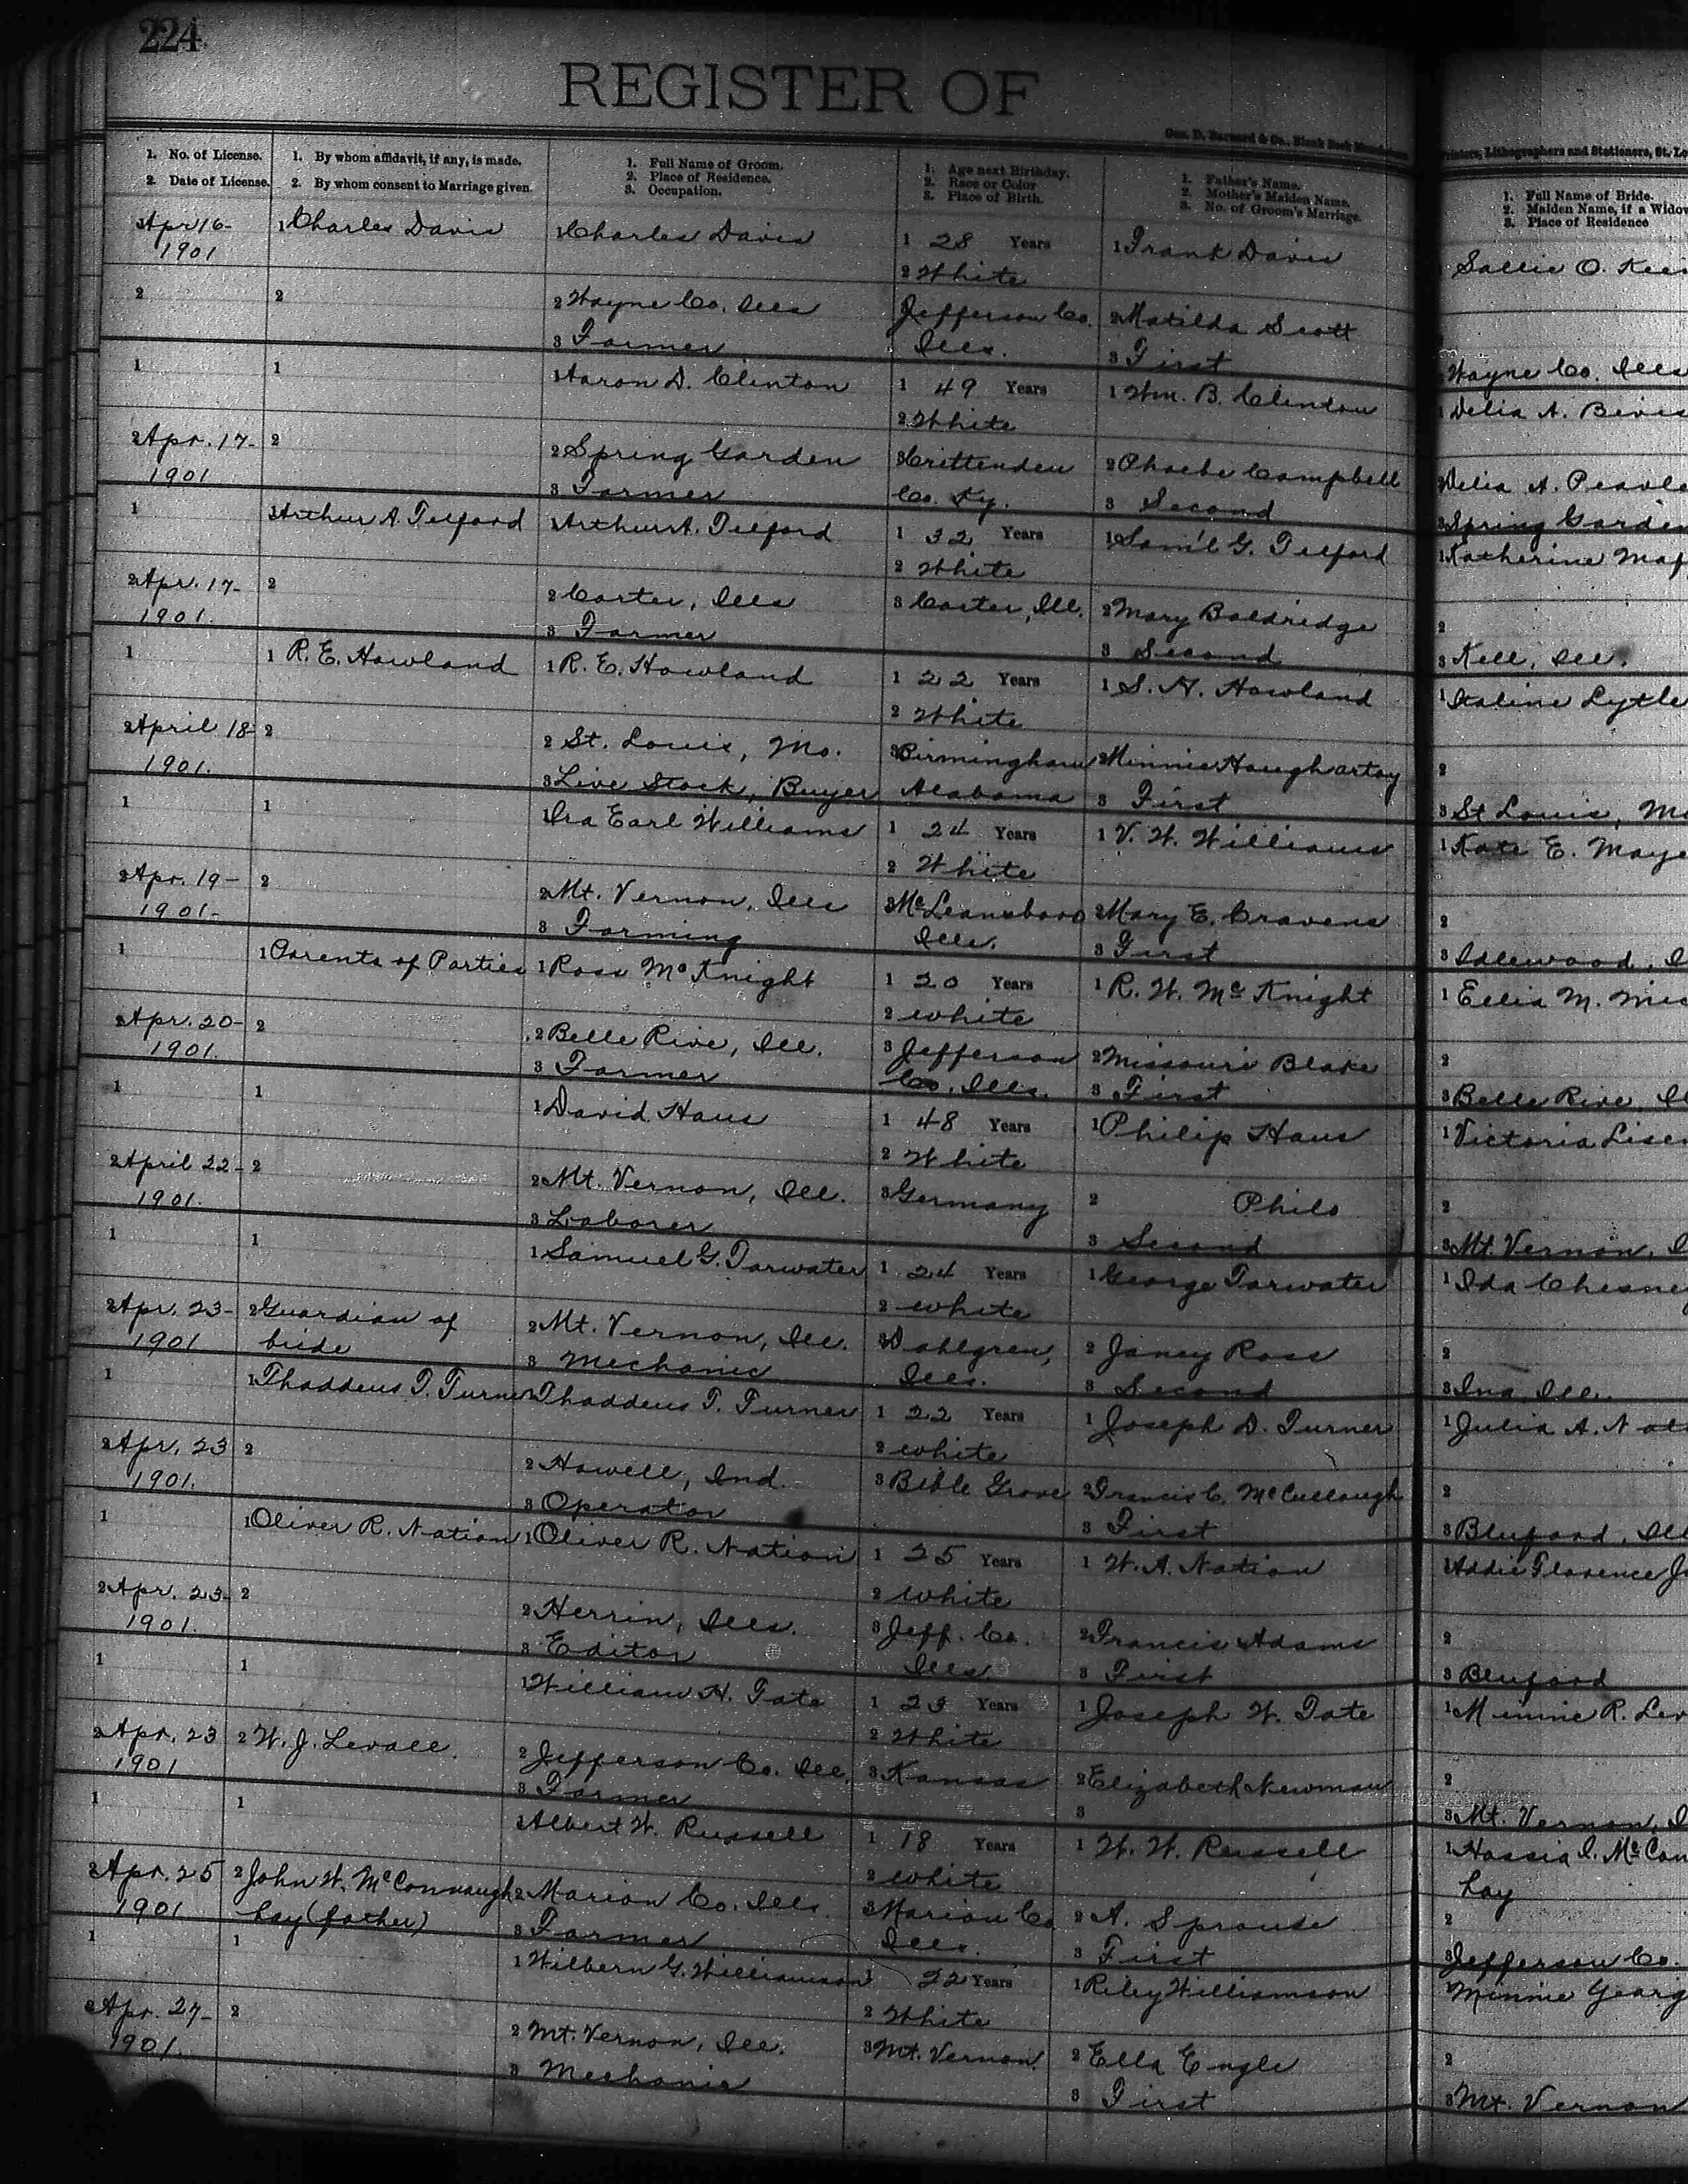 224
REGISTER OF
Geo. D. Barnard & Co., Blank Book
Printers, Lithographers and Stationers, St. Lo
1. No. of License.
2. Date of License.
1. By whom affidavit, if any, is made.
2. By whom consent to Marriage given.
1. Full Name of Groom.
2. Place of Residence.
3. Occupation.
1. Age next Birthday.
2. Race or Color
3. Place of Birth.
1. Father's Name.
2. Mother's Maiden Name.
3. No. of Groom's Marriage.
1. Full Name of Bride.
2. Maiden Name, if a Widow
3. Place of Residence
Apr 16- 1 Charles Davis 1 Charles Davis 1 28 Years 1 Frank Davis Sallie O.
1901 2 White
2 2 2 Wayne Co. Ills Jefferson Co. 2 Matilda Scott
3 Farmer Ills. 3 First Wayne Co. Ills
1 1 1 Aaron D. Clinton 1 49 Years 1 Wm. B. Clinton 1 Delia A.
2 White
2 Apr. 17- 2 2 Spring Garden 3 Crittenden 2 Phoebe Campbell 2 Delia A.
1901 3 Farmer Co. Ky. 3 Second 3 Spring Garden
1 1 Arthur A. Telford 1 Arthur A. Telford 1 32 Years 1 Sam'l G. Telford 1 Katherine
2 White
2 Apr. 17- 2 2 Carter, Ills 3 Carter, Ill. 2 Mary Baldridge 2
1901. 3 Farmer 3 Second 3 Kell, Ill.
1 1 R. E. Howland 1 R. E. Howland 1 22 Years 1 S. N. Howland 1 Italine Lytle
2 White
2 April 18- 2 2 St. Louis, Mo. 3 Birmingham 2 Minnie Houghartay 2
1901. 3 Live Stock, Buyer Alabama 3 First 3 St Louis, Mo
1 1 1 Ira Earl Williams 1 24 Years 1 V. W. Williams 1 Kate E. Maye
2 White
2 Apr. 19- 2 2 Mt. Vernon, Ills 3 McLeansboro 2 Mary E. Cravens 2
1901- 3 Farming Ills. 3 First 3 Idlewood, I
1 1 Parents of Parties 1 Ross McKnight 1 20 Years 1 R. W. McKnight 1 M.
2 white
2 Apr. 20- 2 2 Belle Rive, Ill. 3 Jefferson 2 Missouri Blake 2
1901. 3 Farmer Co. Ills. 3 First 3 Belle Rive, Il
1 1 1 David Haus 1 48 Years 1 Philip Haus 1 Victoria
2 White
2 April 22- 2 2 Mt. Vernon, Ill. 3 Germany 2 Philo 2
1901. 3 Laborer 3 Second 3 Mt. Vernon, I
1 1 1 Samuel G. Tarwater 1 24 Years 1 George Tarwater 1 Ida Chesney
2 white
2 Apr. 23- 2 Guardian of 2 Mt. Vernon, Ill. 3 Dahlgren, 2 Janey Ross 2
1901 bride 3 Mechanic Ills. 3 Second 3 Ina, Ill.
1 1 Thaddeus T. Turner 1 Thaddeus T. Turner 1 22 Years 1 Joseph D. Turner 1 Julia A.
2 white
2 Apr. 23 2 2 Howell, Ind. 3 Bible Grove 2 Francis C. McCullough 2
1901. 3 Operator 3 First 3 Bluford, Ill
1 1 Oliver R. Nation 1 Oliver R. Nation 1 25 Years 1 W. A. Nation 1 Addie Florence
2 White
2 Apr. 23- 2 2 Herrin, Ills. 3 Jeff. Co. 2 Francis Adams 2
1901. 3 Editor Ills 3 First 3 Bluford
1 1 1 William H. Tate 1 23 Years 1 Joseph W. Tate 1 Minnie R. Lev
2 White
2 Apr. 23 2 W. J. Levall. 2 Jefferson Co. Ill. 3 Kansas 2 Elizabeth Newman 2
1901 3 Farmer 3 3 Mt. Vernon, I
1 1 1 Albert W. Russell 1 18 Years 1 W. W. Russell 1 Hassia I. McCon
2 White hay
2 Apr. 25 2 John W. McConnaugh 2 Marion Co. Ills. 3 Marion Co. 2 A. Sprouse 2
1901 hay (father) 3 Farmer Ills. 3 First 3 Jefferson Co.
1 1 1 Wilbern G. Williamson 1 22 Years 1 Riley Williamson 1 Minnie Georg
2 White
2 Apr. 27- 2 2 Mt. Vernon, Ill. 3 Mt. Vernon 2 Ella Engle 2
1901. 3 Mechanic 3 First 3 Mt. Vernon